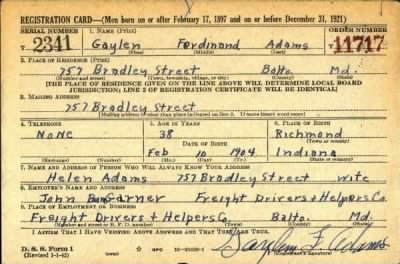 REGISTRATION CARD—(Men born on or after February 17, 1897 and on or before December 31, 1921)
SERIAL NUMBER 1. NAME (Print) ORDER NUMBER
T 2341 Gaylen Ferdinand Adams 11717
(First) (Middle) (Last)
2. PLACE OF RESIDENCE (Print)
757 Bradley Street Balto. Md.
(Number and street) (Town, township, village, or city) (County) (State)
[THE PLACE OF RESIDENCE GIVEN ON THE LINE ABOVE WILL DETERMINE LOCAL BOARD
JURISDICTION; LINE 2 OF REGISTRATION CERTIFICATE WILL BE IDENTICAL]
3. MAILING ADDRESS
757 Bradley Street
[Mailing address if other than place indicated on line 2. If same insert word same]
4. TELEPHONE 5. AGE IN YEARS 6. PLACE OF BIRTH
None 38 Richmond
DATE OF BIRTH (Town or county)
Feb 10 1904 Indiana
(Exchange) (Number) (Mo.) (Day) (Yr.) (State or country)
7. NAME AND ADDRESS OF PERSON WHO WILL ALWAYS KNOW YOUR ADDRESS
Helen Adams 757 Bradley Street wife
8. EMPLOYER'S NAME AND ADDRESS
John Garner Freight Drivers + Helpers Co.
9. PLACE OF EMPLOYMENT OR BUSINESS
Freight Drivers + Helpers Co. Balto. Md.
(Number and street or R. F. D. number) (Town) (County) (State)
I AFFIRM THAT I HAVE VERIFIED ABOVE ANSWERS AND THAT THEY ARE TRUE.
D. S. S. Form 1
(Revised 1-1-42) (over) GPO Gaylen F. Adams